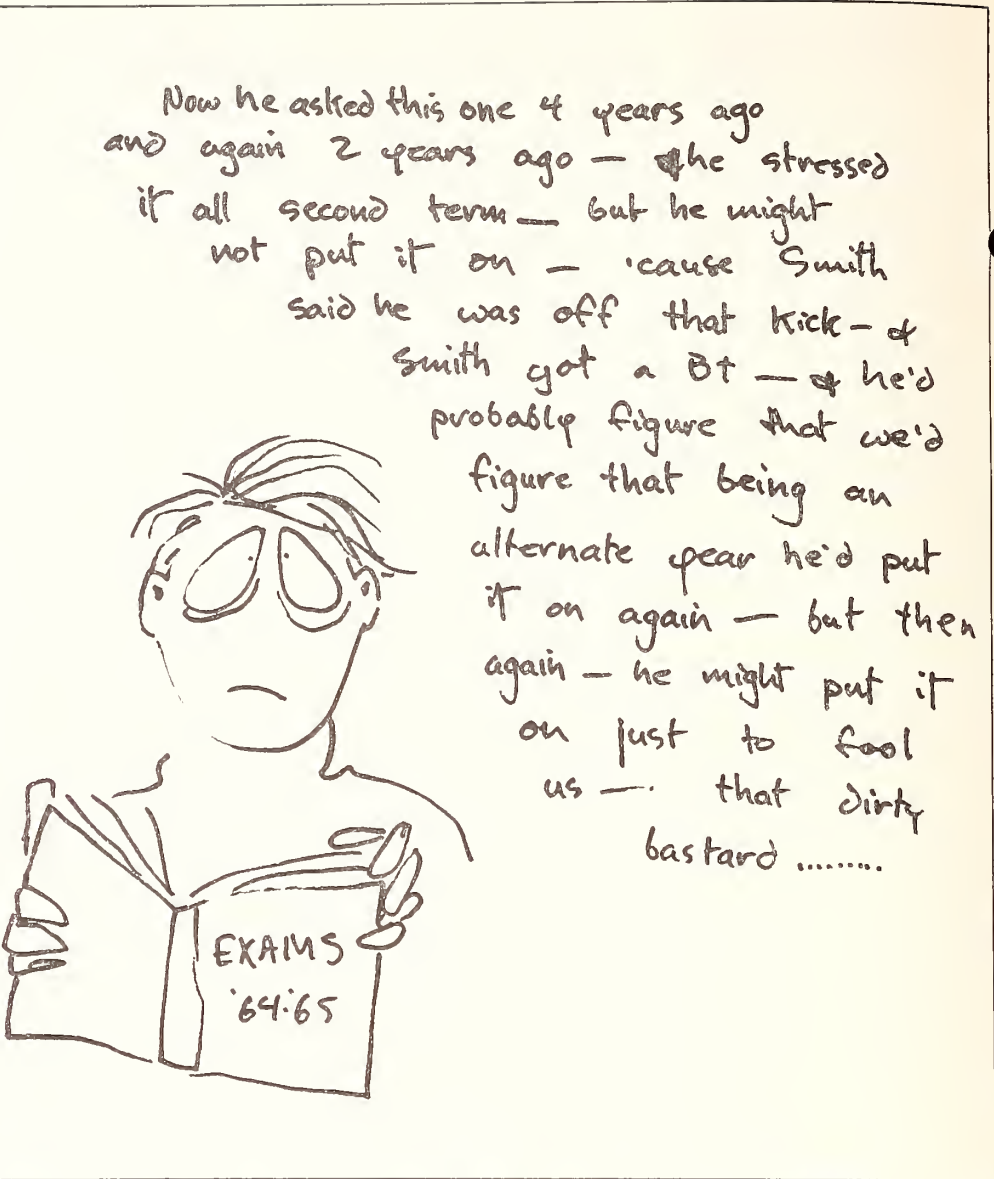 Now he asked this one 4 years ago
and again 2 years ago — & he stressed
it all second term — but he might
not put it on — 'cause Smith
said he was off that kick – &
Smith got a B+ — & he'd
probably figure that we'd
figure that being an
alternate year he'd put
it on again — but then
again — he might put it
on just to fool
us —. that dirty
bastard .........
EXAMS
'64-'65